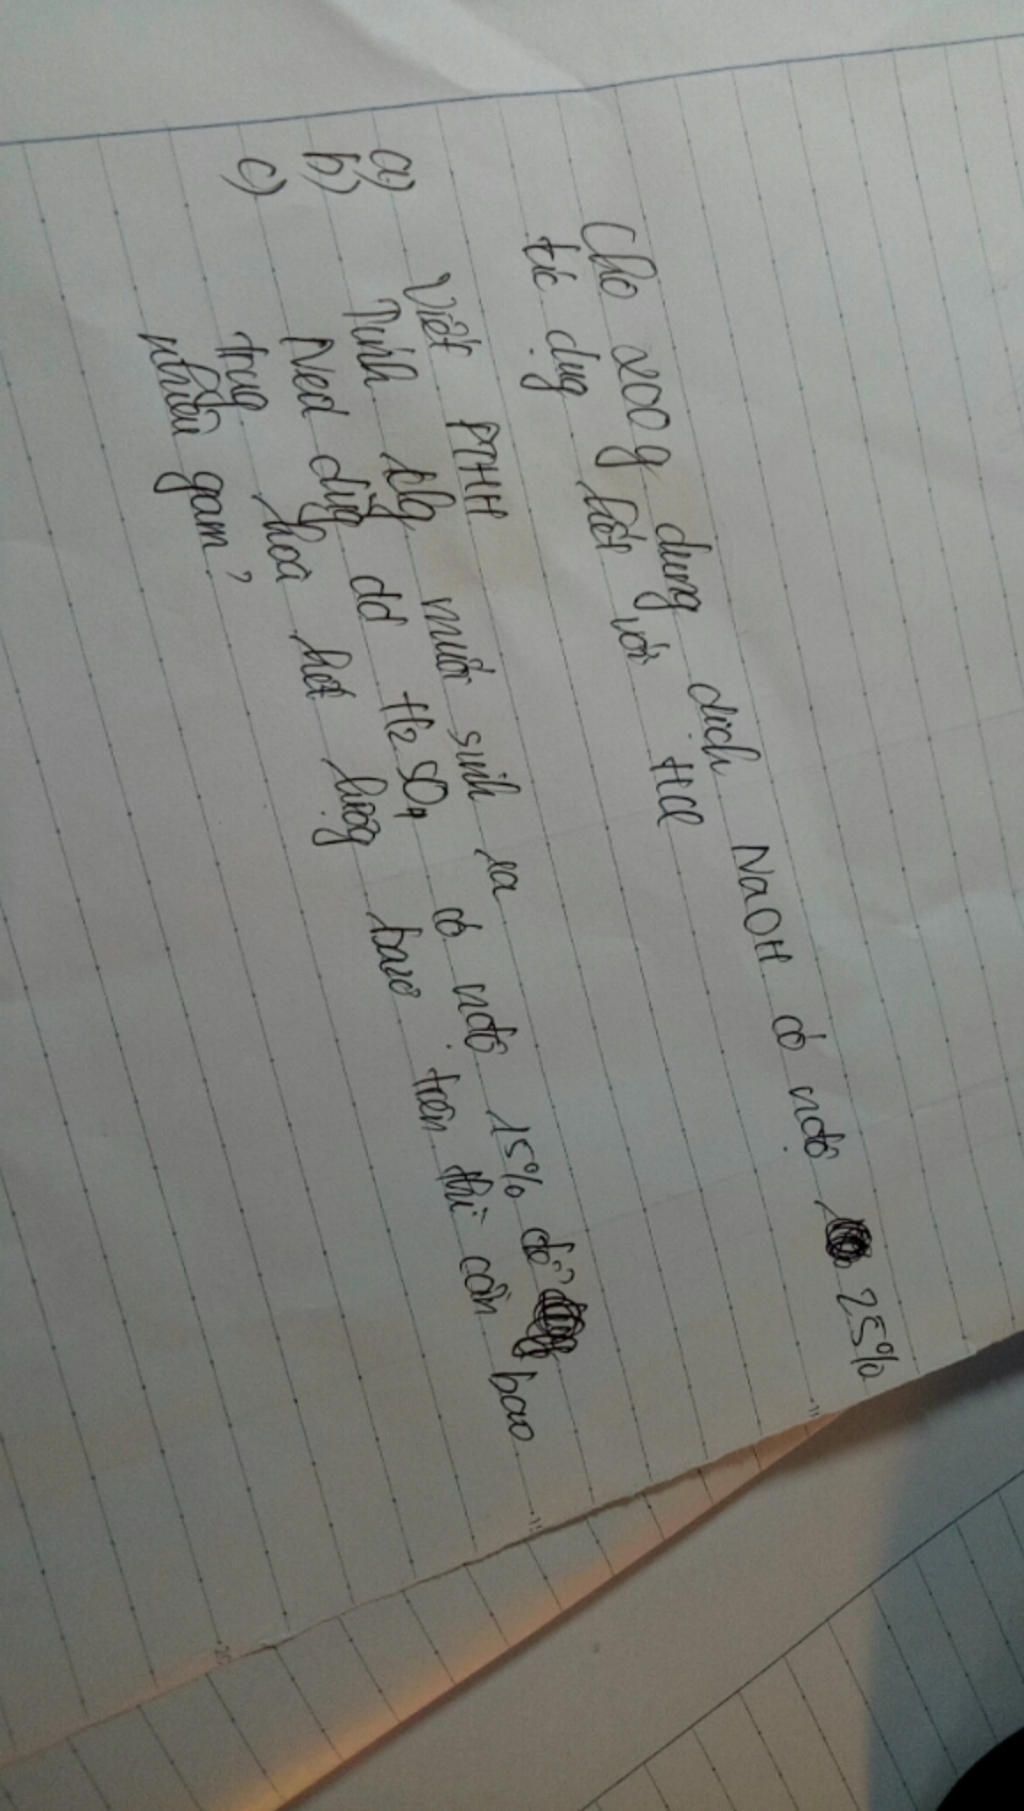 Cho 200g dung dịch NaOH có nđộ 25%
tác dụg hết với HCl
a) Viết PTHH
b) Tính klg muối sinh ra
c) Nếu dùg dd H2SO4 có nđộ 15% để
trug hoà hết lượg bazo trên thì cần bao
nhiêu gam?